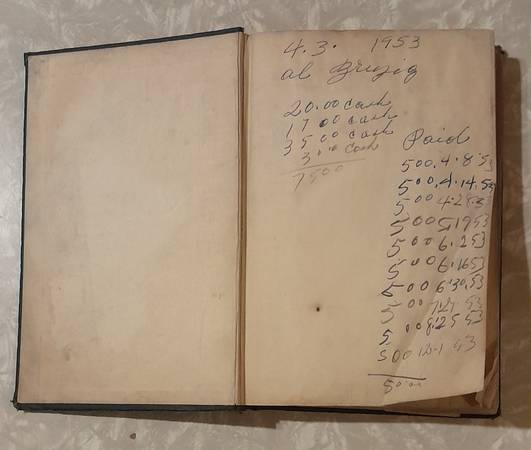 4.3. 1953
al
20.00 cash
17 00 cash
35 00 cash
3.00 cash
7500
Paid
500.4.8.53
500.4.14.53
500 4.28.5
500 5 19 53
500 6.2 53
500 6.16 53
500 6.30.53
500 53
500 8.25 53
500 12.1 53
5000